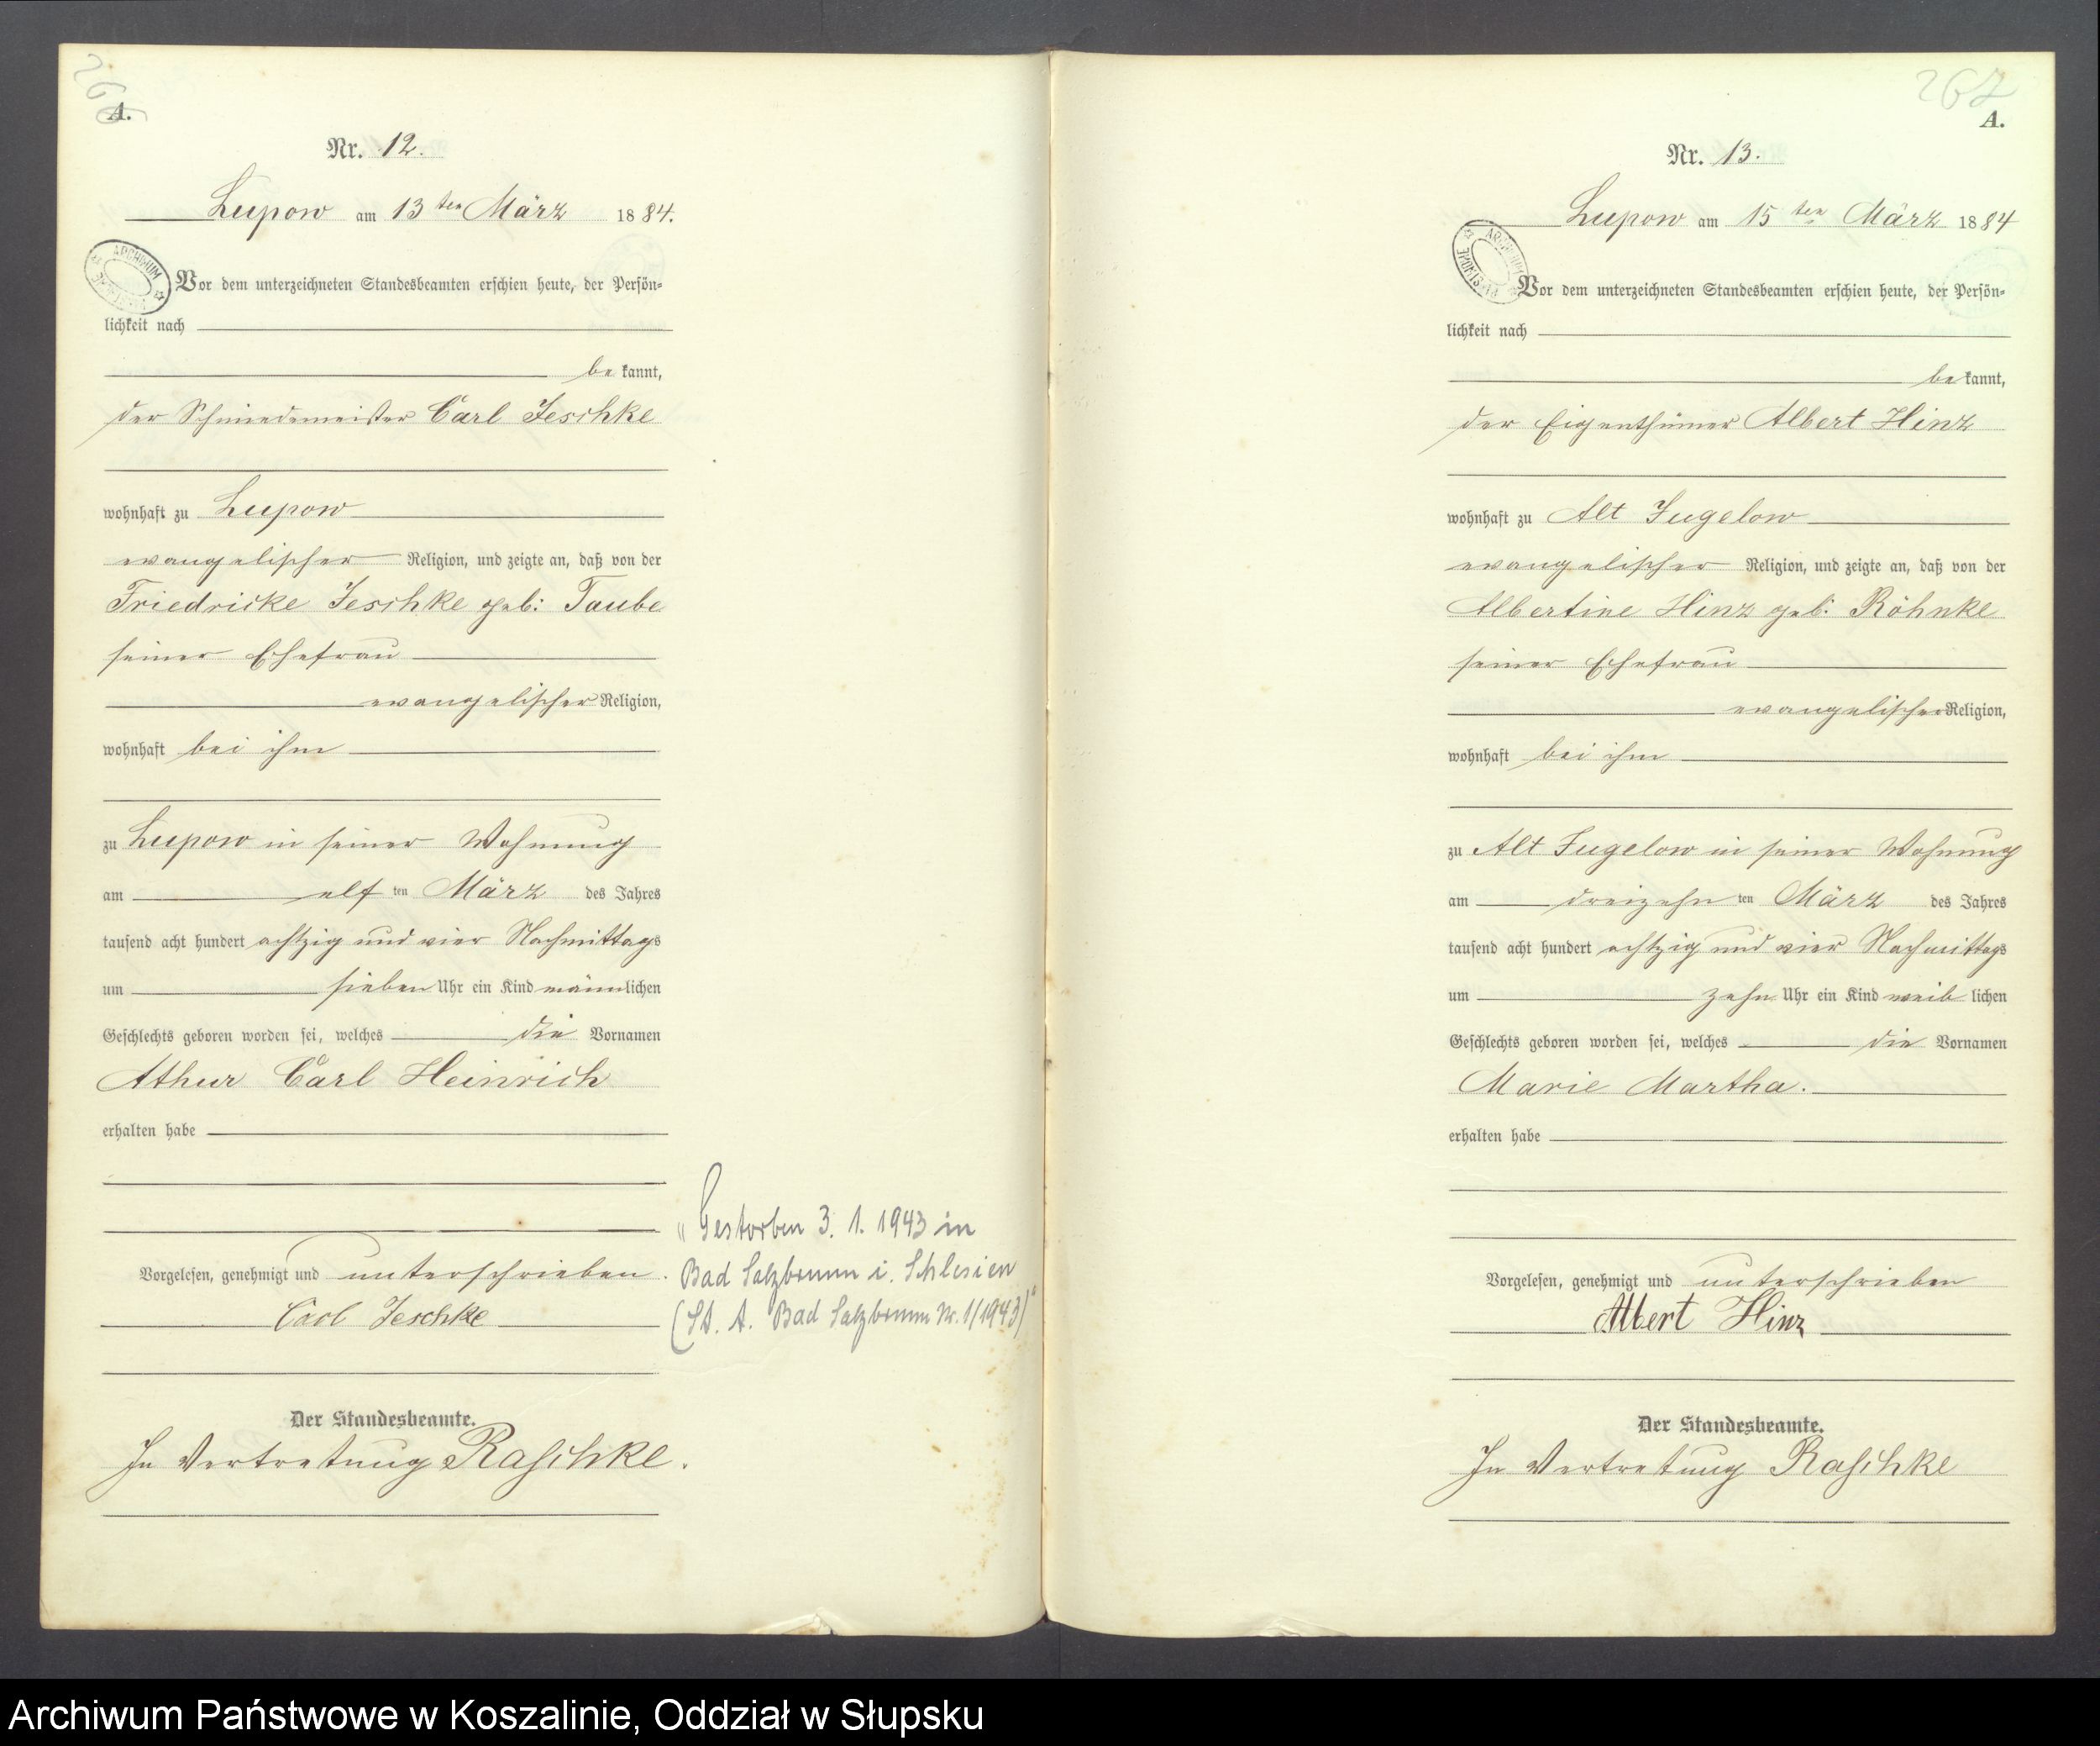 266
A.
Nr. 12.
Lupow am 13ten März 1884.
ARCHIWUM
Vor dem unterzeichneten Standesbeamten erschien heute, der Persön-
lichkeit nach
be kannt,
der Schmiedemeister Carl Jeschke
wohnhaft zu Lupow
evangelischer Religion, und zeigte an, daß von der
Friedricke Jeschke geb: Taube
seiner Ehefrau
evangelischer Religion,
wohnhaft bei ihm
zu Lupow in seiner Wohnung
am elf ten März des Jahres
tausend acht hundert achtzig und vier Nachmittags
um sieben Uhr ein Kind männlichen
Geschlechts geboren worden sei, welches die Vornamen
Athur Carl Heinrich
erhalten habe
Vorgelesen, genehmigt und unterschrieben.
Carl Jeschke
Der Standesbeamte.
In Vertretung Raschke.
"Gestorben 3. 1. 1943 in
Bad Salzbrunn i. Schlesien
(St. A. Bad Salzbrunn Nr. 1/1943)"
267
A.
Nr. 13.
Lupow am 15ten März 1884
ARCHIWUM PAŃSTWOWE
Vor dem unterzeichneten Standesbeamten erschien heute, der Persön-
lichkeit nach
be kannt,
der Eigenthümer Albert Hinz
wohnhaft zu Alt Jugelow
evangelischer Religion, und zeigte an, daß von der
Albertine Hinz geb: Röhnke
seiner Ehefrau
evangelischer Religion,
wohnhaft bei ihm
zu Alt Jugelow in seiner Wohnung
am dreizehn ten März des Jahres
tausend acht hundert achtzig und vier Nachmittags
um zehn Uhr ein Kind weib lichen
Geschlechts geboren worden sei, welches die Vornamen
Marie Martha.
erhalten habe
Vorgelesen, genehmigt und unterschrieben
Albert Hinz
Der Standesbeamte.
In Vertretung Raschke
Archiwum Państwowe w Koszalinie, Oddział w Słupsku